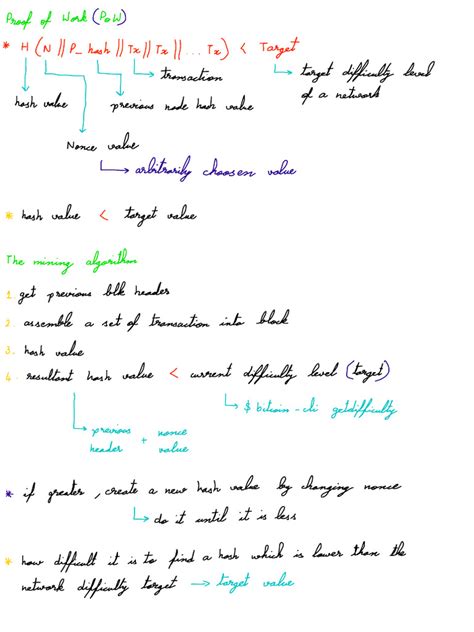 Proof of Work (PoW)
* H (N || P_ hash || Tx || Tx || ... Tx) < Target
transaction
target difficulty level
of a network
hash value
previous node hash value
Nonce value
arbitrarily choosen value
* hash value < target value
The mining algorithm
1. get previous blk header
2. assemble a set of transaction into block
3. hash value
4. resultant hash value < current difficulty level (target)
$ bitcoin-cli getdifficulty
previous + nonce
header value
* if greater, create a new hash value by changing nonce
do it until it is less
* how difficult it is to find a hash which is lower than the
network difficulty target → target value